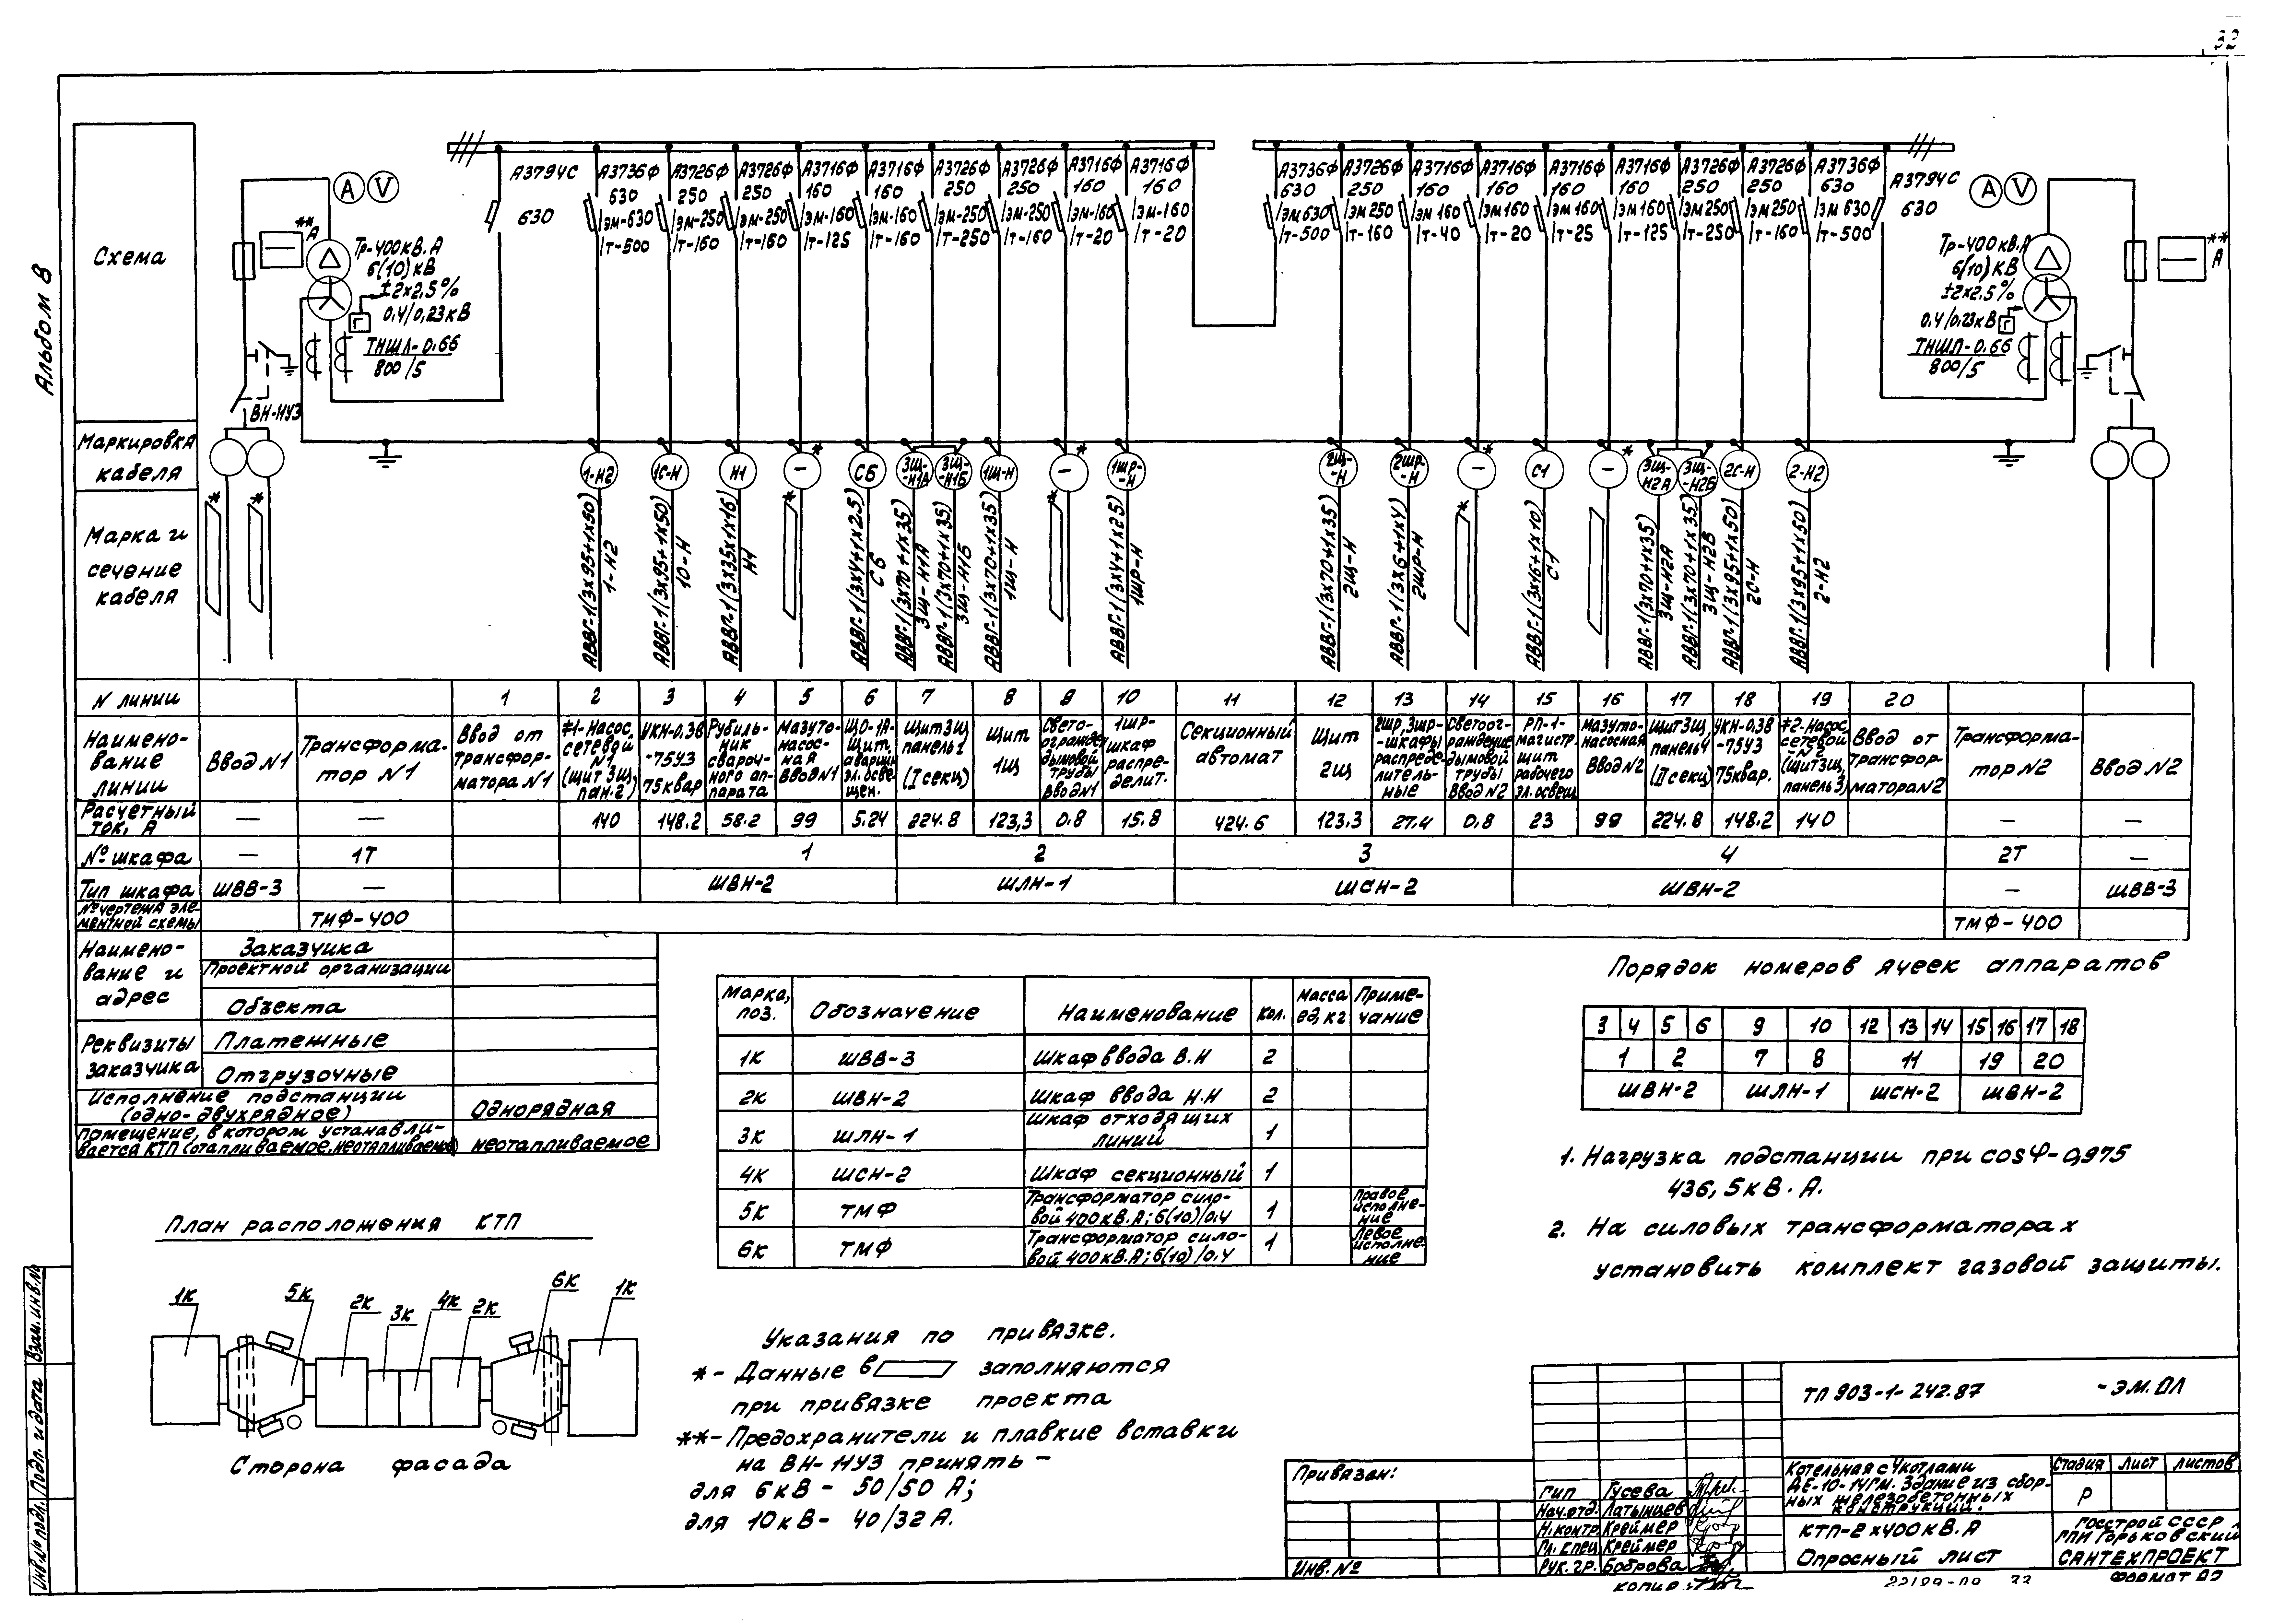 32
Альбом 8
Схема
Маркировка
кабеля
Марка и
сечение
кабеля
А V
**
А
Тр-400кВ.А
6(10)кВ
±2х2,5%
0,4/0,23кВ
Г
ТНШЛ-0.66
800/5
ВН-НУЗ
А3794С
630
А3736Ф
630
Iэм-630
Iт-500
А3726Ф
250
Iэм-250
Iт-160
А3726Ф
250
Iэм-250
Iт-160
А3716Ф
160
Iэм-160
Iт-125
А3716Ф
160
Iэм-160
Iт-160
А3726Ф
250
Iэм-250
Iт-250
А3726Ф
250
Iэм-250
Iт-160
А3716Ф
160
Iэм-160
Iт-20
А3716Ф
160
Iэм-160
Iт-20
А3736Ф
630
Iэм630
Iт-500
А3726Ф
250
Iэм250
Iт-160
А3716Ф
160
Iэм160
Iт-40
А3716Ф
160
Iэм160
Iт-20
А3716Ф
160
Iэм160
Iт-25
А3716Ф
160
Iэм160
Iт-125
А3726Ф
250
Iэм250
Iт-250
А3726Ф
250
Iэм250
Iт-160
А3736Ф
630
Iэм630
Iт-500
А3794С
630
А V
Тр-400кВ.А
6(10)кВ
±2х2.5%
0,4/0,23кВ
Г
ТНШЛ-0.66
800/5
**
А
1-Н2
1С-Н
Н1
— *
СБ
3Щ-
-Н1А
3Щ-
-Н1Б
1Щ-Н
— *
1ШР-
-Н
2Щ-
-Н
2ШР-
-Н
— *
С1
— *
3Щ-
Н2А
3Щ-
-Н2Б
2С-Н
2-Н2
АВВГ-1(3х95+1х50)
1-Н2
АВВГ-1(3х95+1х50)
10-Н
АВВГ-1(3х35х1х16)
Н1
АВВГ-1(3х4+1х2.5)
СБ
АВВГ-1(3х70+1х35)
3Щ-Н1А
АВВГ-1(3х70+1х35)
3Щ-Н1Б
АВВГ-1(3х70+1х35)
1Щ-Н
АВВГ-1(3х4+1х2.5)
1ШР-Н
АВВГ-1(3х70+1х35)
2Щ-Н
АВВГ-1(3х6+1х4)
2ШР-Н
АВВГ-1(3х16+1х10)
С1
АВВГ-1(3х70+1х35)
3Щ-Н2А
АВВГ-1(3х70+1х35)
3Щ-Н2Б
АВВГ-1(3х95+1х50)
2С-Н
АВВГ-1(3х95+1х50)
2-Н2
N линии 1 2 3 4 5 6 7 8 9 10 11 12 13 14 15 16 17 18 19 20
Наимено-
вание
линии
Ввод N1
Трансформа-
тор N1
Ввод от
трансфор-
матора N1
#1-Насос
сетевой
N1
(щит 3щ
пан.2)
УКН-0,38
-75У3
75квар
Рубиль-
ник
свароч-
ного ап-
парата
Мазуто-
насос-
ная
Ввод N1
ЩО-1А-
Щит.
аварийн
эл. осве-
щен.
Щит 3щ
панель 1
(I секц)
Щит
1щ
Свето-
огражде
дымовой
трубы
Ввод N1
1шр-
шкаф
распре-
делит.
Секционный
автомат
Щит
2щ
2шр,3шр-
-шкафы
распреде-
литель-
ные
Светоог-
раждение
дымовой
трубы
Ввод N2
РП-1-
магистр.
щит
рабочего
эл. освещ
Мазуто-
насосная
Ввод N2
Щит 3щ
панель 4
(II секц)
УКН-0,38
-75У3
75квар.
#2.Насос
сетевой
-N2
(щит 3щ,
панель 3)
Ввод от
трансфор-
матора N2
Трансформа-
тор N2
Ввод N2
Расчетный
ток, А
— — 140 148.2 58.2 99 5.24 224.8 123,3 0.8 15.8 424.6 123.3 27.4 0.8 23 99 224.8 148.2 140 — —
№ шкафа — 1Т 1 2 3 4 2Т —
Тип шкафа ШВВ-3 — ШВН-2 ШЛН-1 ШСН-2 ШВН-2 — ШВВ-3
№ чертежа эле-
ментной схемы
ТМФ-400 ТМФ-400
Наимено-
вание и
адрес
Заказчика
Проектной организации
Объекта
Реквизиты
заказчика
Платежные
Отгрузочные
Исполнение подстанции
(одно-двухрядное)
Однорядная
Помещение, в котором устанавли-
вается КТП (отапливаемое, неотапливаемое)
неотапливаемое
Марка,
поз.
Обозначение
Наименование
Кол.
Масса
ед,кг
Приме-
чание
1К ШВВ-3 Шкаф ввода В.Н 2
2К ШВН-2 Шкаф ввода Н.Н 2
3К ШЛН-1 Шкаф отходящих
линий 1
4К ШСН-2 Шкаф секционный 1
5К ТМФ Трансформатор сило-
вой 400кВ.А; 6(10)/0,4 1 Правое
исполне-
ние
6К ТМФ Трансформатор сило-
вой 400кВ.А; 6(10)/0,4 1 Левое
исполне-
ние
Порядок номеров ячеек аппаратов
3 4 5 6 9 10 12 13 14 15 16 17 18
1 2 7 8 11 19 20
ШВН-2 ШЛН-1 ШСН-2 ШВН-2
1. Нагрузка подстанции при cosφ-0,975
436,5кВ.А.
2. На силовых трансформаторах
установить комплект газовой защиты.
План расположения КТП
1К 5К 2К 3К 4К 2К 6К 1К
Сторона фасада
Указания по привязке.
*- Данные в заполняются
при привязке проекта
**- Предохранители и плавкие вставки
на ВН-НУЗ принять -
для 6кВ - 50/50 А;
для 10кВ - 40/32 А.
Привязан:
Инв.№
ГИП Гусева
Нач.отд. Латынцев
Н.контр. Креймер
Гл. спец. Креймер
Рук.гр. Боброва
ТП 903-1-242.87 -ЭМ.ОЛ
Котельная с 4 котлами
ДЕ-10-14ГМ. Здание из сбор-
ных железобетонных
конструкций.
Стадия Лист Листов
Р
КТП-2х400кВ.А
Опросный лист
Госстрой СССР
ГПИ Горьковский
САНТЕХПРОЕКТ
копир.
22189-09 33
формат А2
Взам. инв.№
Подп. и дата
Инв.№ подл.